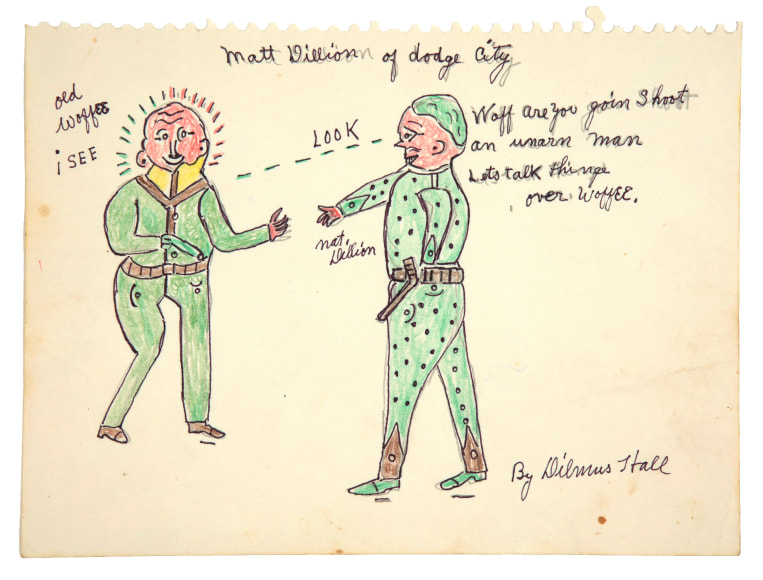 Matt Dillion of dodge City
old
Woffee
i SEE
LOOK
Woff are you goin Shoot
an unarn man
Lets talk things
over Woffee.
nat.
Dillion
By Dilmus Hall